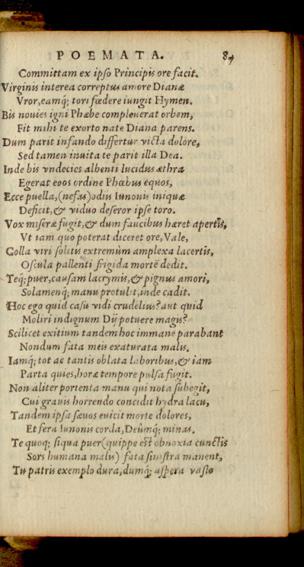 POEMATA. 84
Committam ex ipso Principis ore facit.
Virginis interea correptus amore Dianæ
Vror, eamq; tori fœdere iungit Hymen.
Bis nouies igni Phœbe compleuerat orbem,
Fit mihi te exorto nate Diana parens.
Dum parit infando differtur victa dolore,
Sed tamen inuita te parit illa Dea.
Inde bis vndecies albenti lucidus æthra
Egerat eoos ordine Phœbus equos,
Ecce puella, (nefas) odijs Iunonis iniquæ
Deficit, & viduo deseror ipse toro.
Vox miseræ fugit, & dum faucibus hæret apertis,
Vt iam quo poterat diceret ore, Vale,
Colla viri solitis extremùm amplexa lacertis,
Oscula pallenti frigida morte dedit.
Teq; puer, causam lacrymis, & pignus amori,
Solamenq; manu protulit, inde cadit.
Hoc ego quid casu vidi crudelius? aut quid
Moliri indignum Dij potuere magis?
Scilicet exitium tandem hoc immane parabant
Nondum fata meis exaturata malis.
Iamq; tot ac tantis oblata laboribus, & iam
Parta quies, horæ tempore pulsa fugit.
Non aliter portenta manu qui nota subegit,
Cui grauis horrendo concidit hydra lacu,
Tandem ipsa sæuos euicit morte dolores,
Et fera Iunonis corda, Deûmq; minas.
Te quoq; siqua puer (quippe est obnoxia cunctis
Sors humana malis) fata sinistra manent,
Tu patris exemplo dura, dumq; aspera vasto